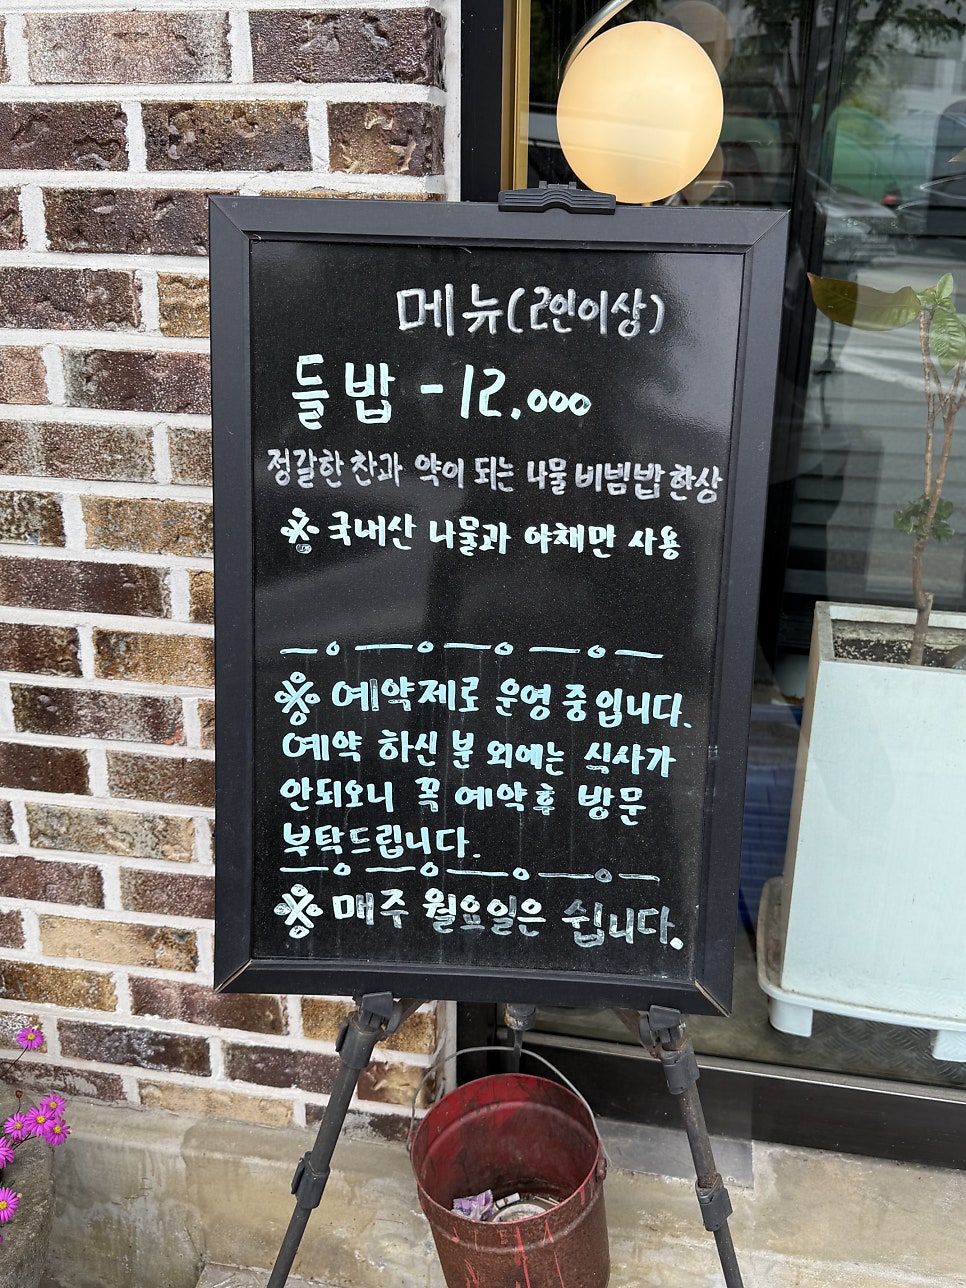 메뉴(2인이상)
들밥 - 12.000
정갈한 찬과 약이 되는 나물 비빔밥 한상
※ 국내산 나물과 야채만 사용
※ 예약제로 운영 중 입니다.
예약 하신 분 외에는 식사가
안되오니 꼭 예약 후 방문
부탁드립니다.
※ 매주 월요일은 쉽니다.